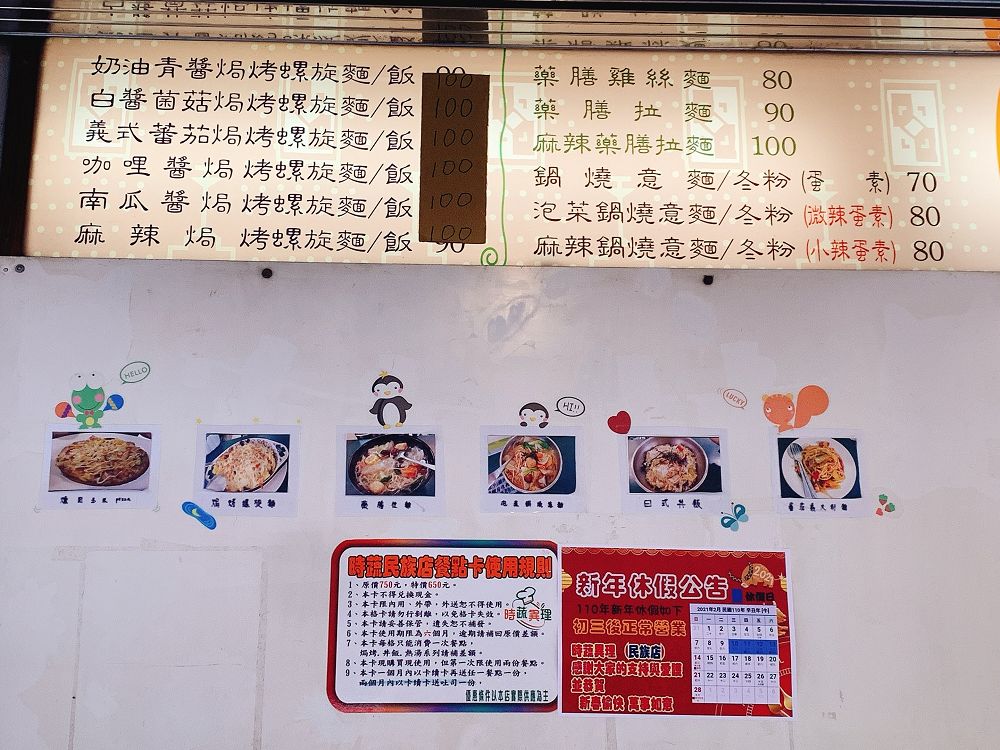 奶油青醬焗烤螺旋麵/飯 90
白醬菌菇焗烤螺旋麵/飯 100
義式蕃茄焗烤螺旋麵/飯 100
咖哩醬焗烤螺旋麵/飯 100
南瓜醬焗烤螺旋麵/飯 100
麻辣焗烤螺旋麵/飯 100
90
藥膳雞絲麵 80
藥膳拉麵 90
麻辣藥膳拉麵 100
鍋燒意麵/冬粉(蛋素) 70
泡菜鍋燒意麵/冬粉(微辣蛋素) 80
麻辣鍋燒意麵/冬粉(小辣蛋素) 80
HELLO
HI!!
LUCKY
焗烤螺旋麵
藥膳拉麵
泡菜鍋燒意麵
日式丼飯
蕃茄義大利麵
時蔬民族店餐點卡使用規則
1、原價750元,特價650元。
2、本卡不得兌換現金。
3、本卡限內用、外帶,外送恕不得使用。
4、本格卡請勿行剝離,以免格卡失效。
5、本卡請妥善保管,遺失恕不補發。
6、本卡使用期限為六個月,逾期請補回原價差額。
7、本卡每格只能消費一次餐點,
焗烤.丼飯.熱湯系列請補差額。
8、本卡現購買現使用,但第一次限使用兩份餐點。
9、本卡一個月內以卡續卡再送任一餐點一份,
兩個月內以卡續卡送吐司一份,
優惠條件以本店實際供應為主
時蔬異理
新年休假公告
2021
休假日
110年新年休假如下
初三後正常營業
時蔬異理 (民族店)
感謝大家的支持與愛護
並恭賀
新春愉快 萬事如意
2021年2月 民國110年 辛丑年(牛)
日 一 二 三 四 五 六
1 2 3 4 5 6
7 8 9 10 11 12 13
14 15 16 17 18 19 20
21 22 23 24 25 26 27
28